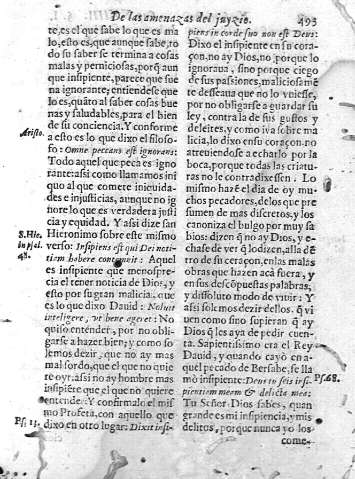 De las amenazas del juyzio.
493
te, es el que sabe lo que es ma
lo, esto es, que aunque sabe, to
do su saber se termina a cosas
malas y perniciosas, porq̃ aun
que insipiente, parece que sue
na ignorante; entiendese que
lo es, quãto al saber cosas bue
nas y saludables, para el bien
de su conciencia. Y conforme
Aristo.
a esto es lo que dixo el filoso-
fo: Omne peccans est ignorans:
Todo aquel que peca es igno
rante: assi como llamamos ini
quo al que comete iniquida-
des e injusticias, aunque no ig
nore lo que es verdadera justi
cia y equidad. Y assi dize san
S. Hie.
Hieronimo sobre este mismo
in Psal.
verso: Insipiens est qui Dei noti-
48.
tiam habere contemnit: Aquel
es insipiente que menospre-
cia el tener noticia de Dios, y
esto por su gran malicia, que
es lo que dixo Dauid: Noluit
intelligere, vt bene ageret: No
quiso entender, por no obli-
garse a hazer bien; y como so
lemos dezir, que no ay mas
mal sordo, que el que no quie
re oyr: assi no ay hombre mas
insipiẽte que el que no quiere
entende. Y confirmalo el mis
mo Profeta, con aquello que
Psi 13.
dixo en otro lugar: Dixit insi-
piens in corde suo non est Deus:
Dixo el insipiente en su cora-
çon, no ay Dios, no porque lo
ignoraua, sino porque ciego
de sus passiones, maliciosamẽ
te desseaua que no lo vuiesse,
por no obligarse a guardar su
ley, contra la de sus gustos y
deleites, y como iva sobre ma
licia, lo dixo en su coraçon, no
atreuiendose a echarlo por la
boca, porque todas las criatu-
ras no le contradixessen. Lo
mismo hazẽ el dia de oy mu-
chos pecadores, delos que pre
sumen de mas discretos, y los
canoniza el bulgo por muy sa
bios: dizen q̃ no ay Dios, y e-
chase de ver q̃ lo dizen, alla dẽ
tro de su coraçon, en las malas
obras que hazen acà fuera, y
en sus descõpuestas palabras,
y dissoluto modo de viuir: Y
assi solemos dezir dellos. q̃ vi
uen como sino supieran q̃ ay
Dios q̃ les aya de pedir cuen-
ta. Sapientissimo era el Rey
Dauid, y quando cayò en a-
quel pecado de Bersabe, se lla
Ps. 68.
mò insipiente: Deus tu scis insi-
pientiem meam & delicta mea:
Tu Señor Dios sabes, quan
grande es mi insipiencia, y mis
delitos, porque nunca yo los
come-